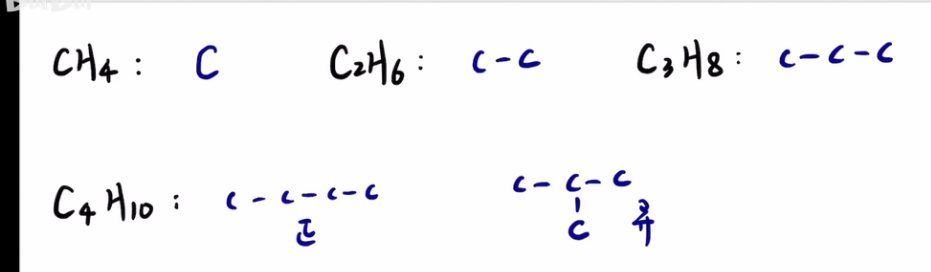 CH₄: C C₂H₆: C-C C₃H₈: C-C-C
C₄H₁₀: C-C-C-C C-C-C
正 C 异